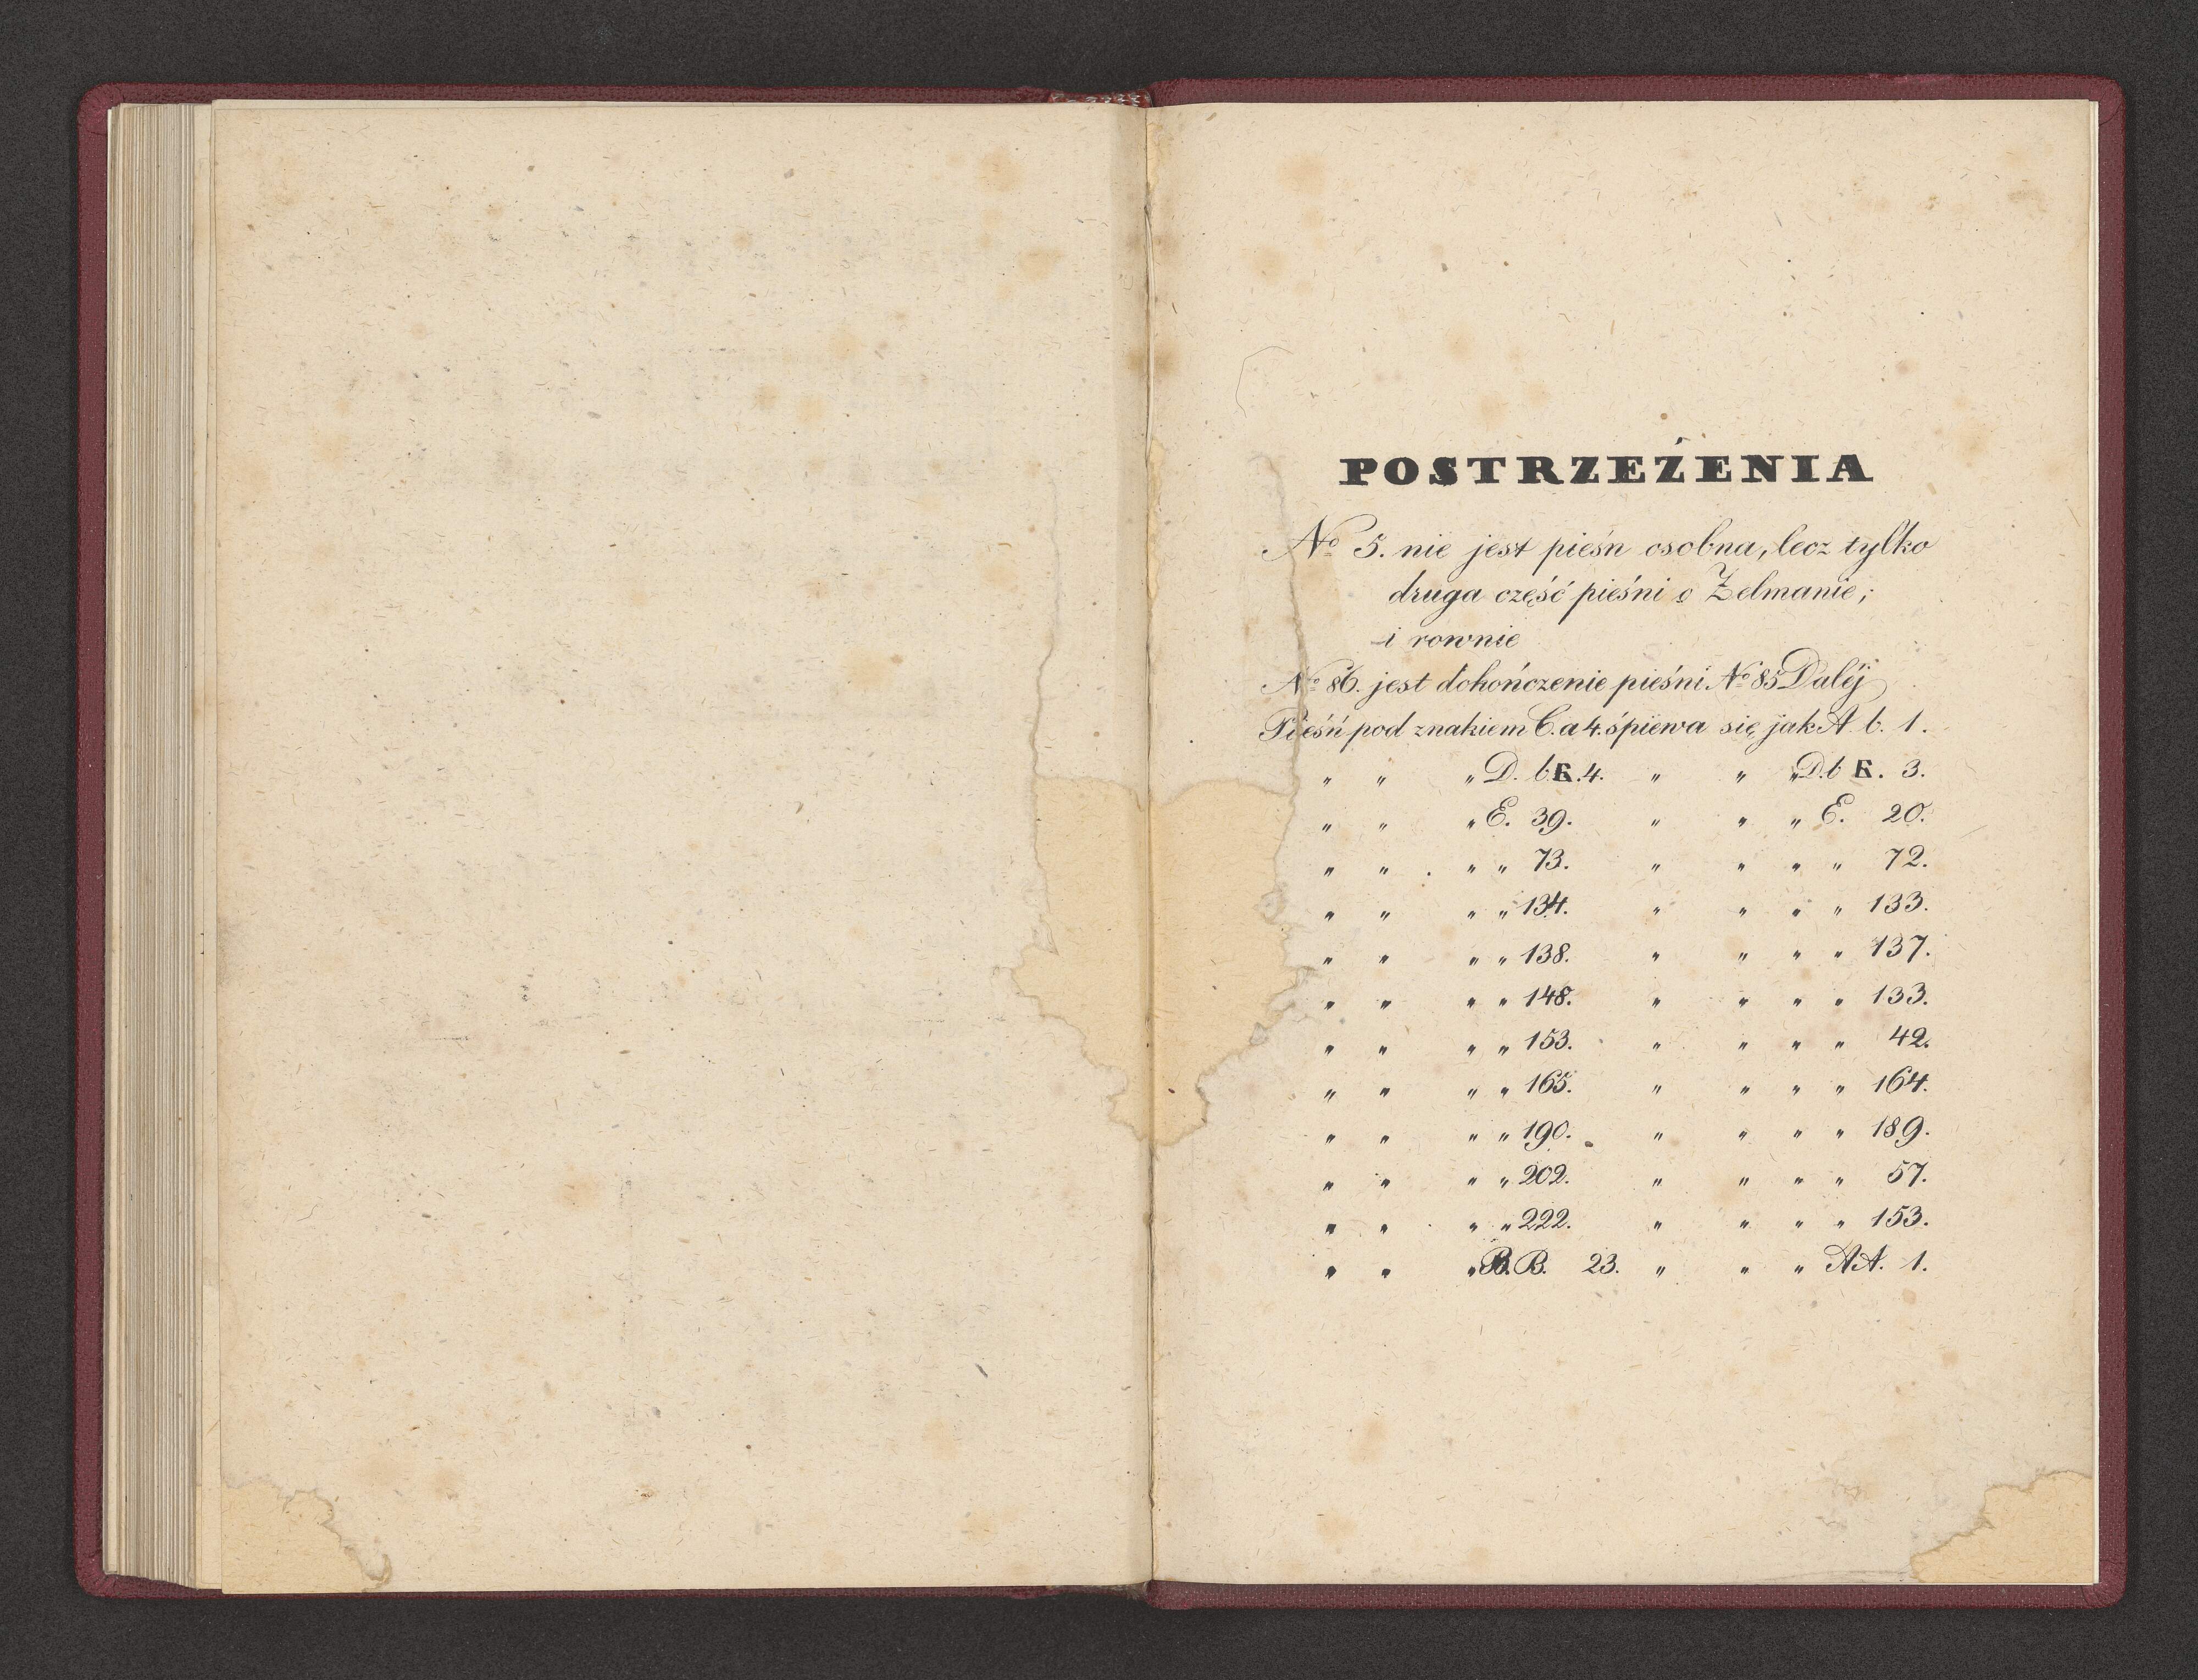 POSTRZEŹENIA
No 5. nie jest pieśn osobna, lecz tylko
druga część pieśni o Żelmanie;
i rownie
No 86. jest dokończenie pieśni No 85 Daléj
Pieśń pod znakiem C. a 4. śpiewa się jak A b. 1.
" " " D. b B. 4. " " " D. b B. 3.
" " " E. 39. " " " E. 20.
" " " " 73. " " " " 72.
" " " " 134. " " " " 133.
" " " " 138. " " " " 137.
" " " " 148. " " " " 133.
" " " " 153. " " " " 42.
" " " " 165. " " " " 164.
" " " " 190. " " " " 189.
" " " " 202. " " " " 57.
" " " " 222. " " " " 153.
" " " B. B. 23. " " " AA. 1.